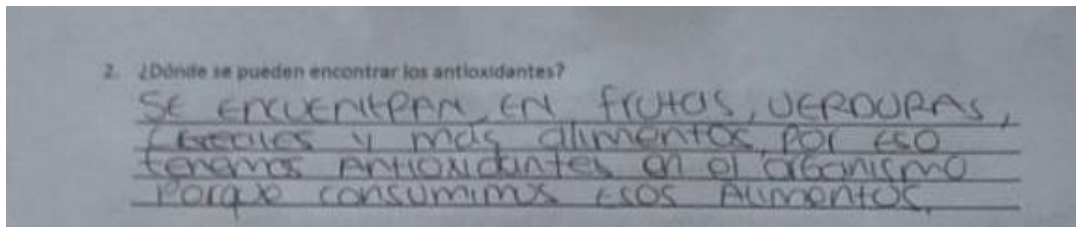 2. ¿Dónde se pueden encontrar los antioxidantes?
SE ENCUENtRAN EN frutas, VERDURAS,
CEreales y más alimentos, por eso
tenemos Antioxidantes en el organismo
Porque consumimos esos Alimentos.